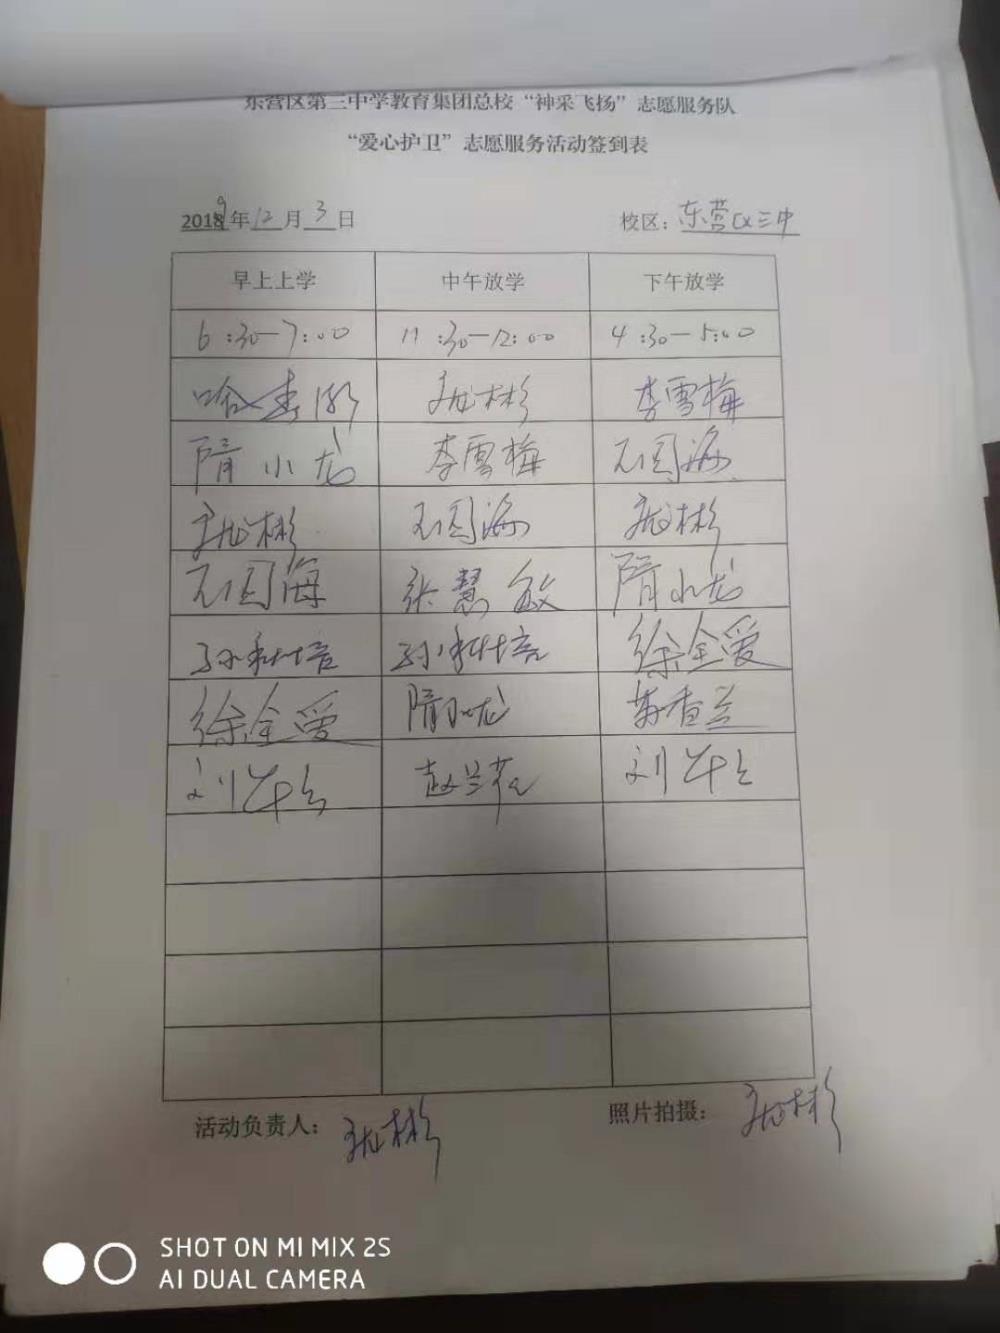 东营区第三中学教育集团总校“神采飞扬”志愿服务队
“爱心护卫”志愿服务活动签到表
2019年12月3日 校区：东营区三中
早上上学 中午放学 下午放学
6:30-7:00 11:30-12:00 4:30-5:00
彬 李雪梅
隋小龙 李雪梅 石国海
彬 石国海 彬
石国海 张慧敏 隋小龙
孙秋培 孙秋培 徐全爱
徐全爱 隋小龙 香兰
刘 赵兰花 刘
活动负责人： 彬 照片拍摄： 彬
SHOT ON MI MIX 2S
AI DUAL CAMERA